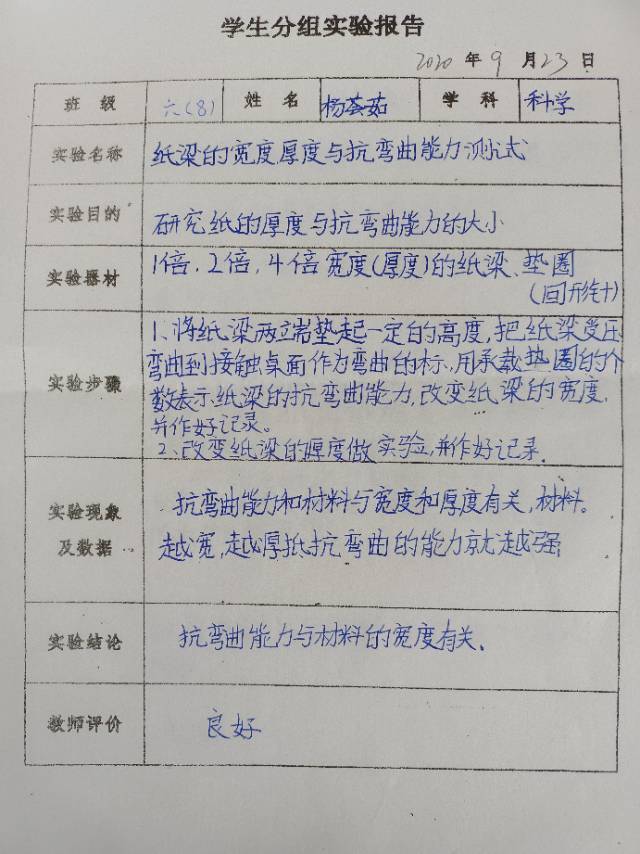 学生分组实验报告
2020 年 9 月 23 日
班 级 六(8) 姓 名 杨荟茹 学 科 科学
实验名称 纸梁的宽度厚度与抗弯曲能力测试
实验目的 研究纸的厚度与抗弯曲能力的大小
实验器材 1倍,2倍,4倍宽度(厚度)的纸梁、垫圈
(回形针)
1、将纸梁两端垫起一定的高度,把纸梁受压
弯曲到接触桌面作为弯曲的标,用承载垫圈的个
实验步骤 数表示纸梁的抗弯曲能力,改变纸梁的宽度,
并作好记录。
2、改变纸梁的厚度做实验,并作好记录.
实验现象 抗弯曲能力和材料与宽度和厚度有关,材料。
及数据 越宽,越厚抵抗弯曲的能力就越强
实验结论 抗弯曲能力与材料的宽度有关.
教师评价 良好